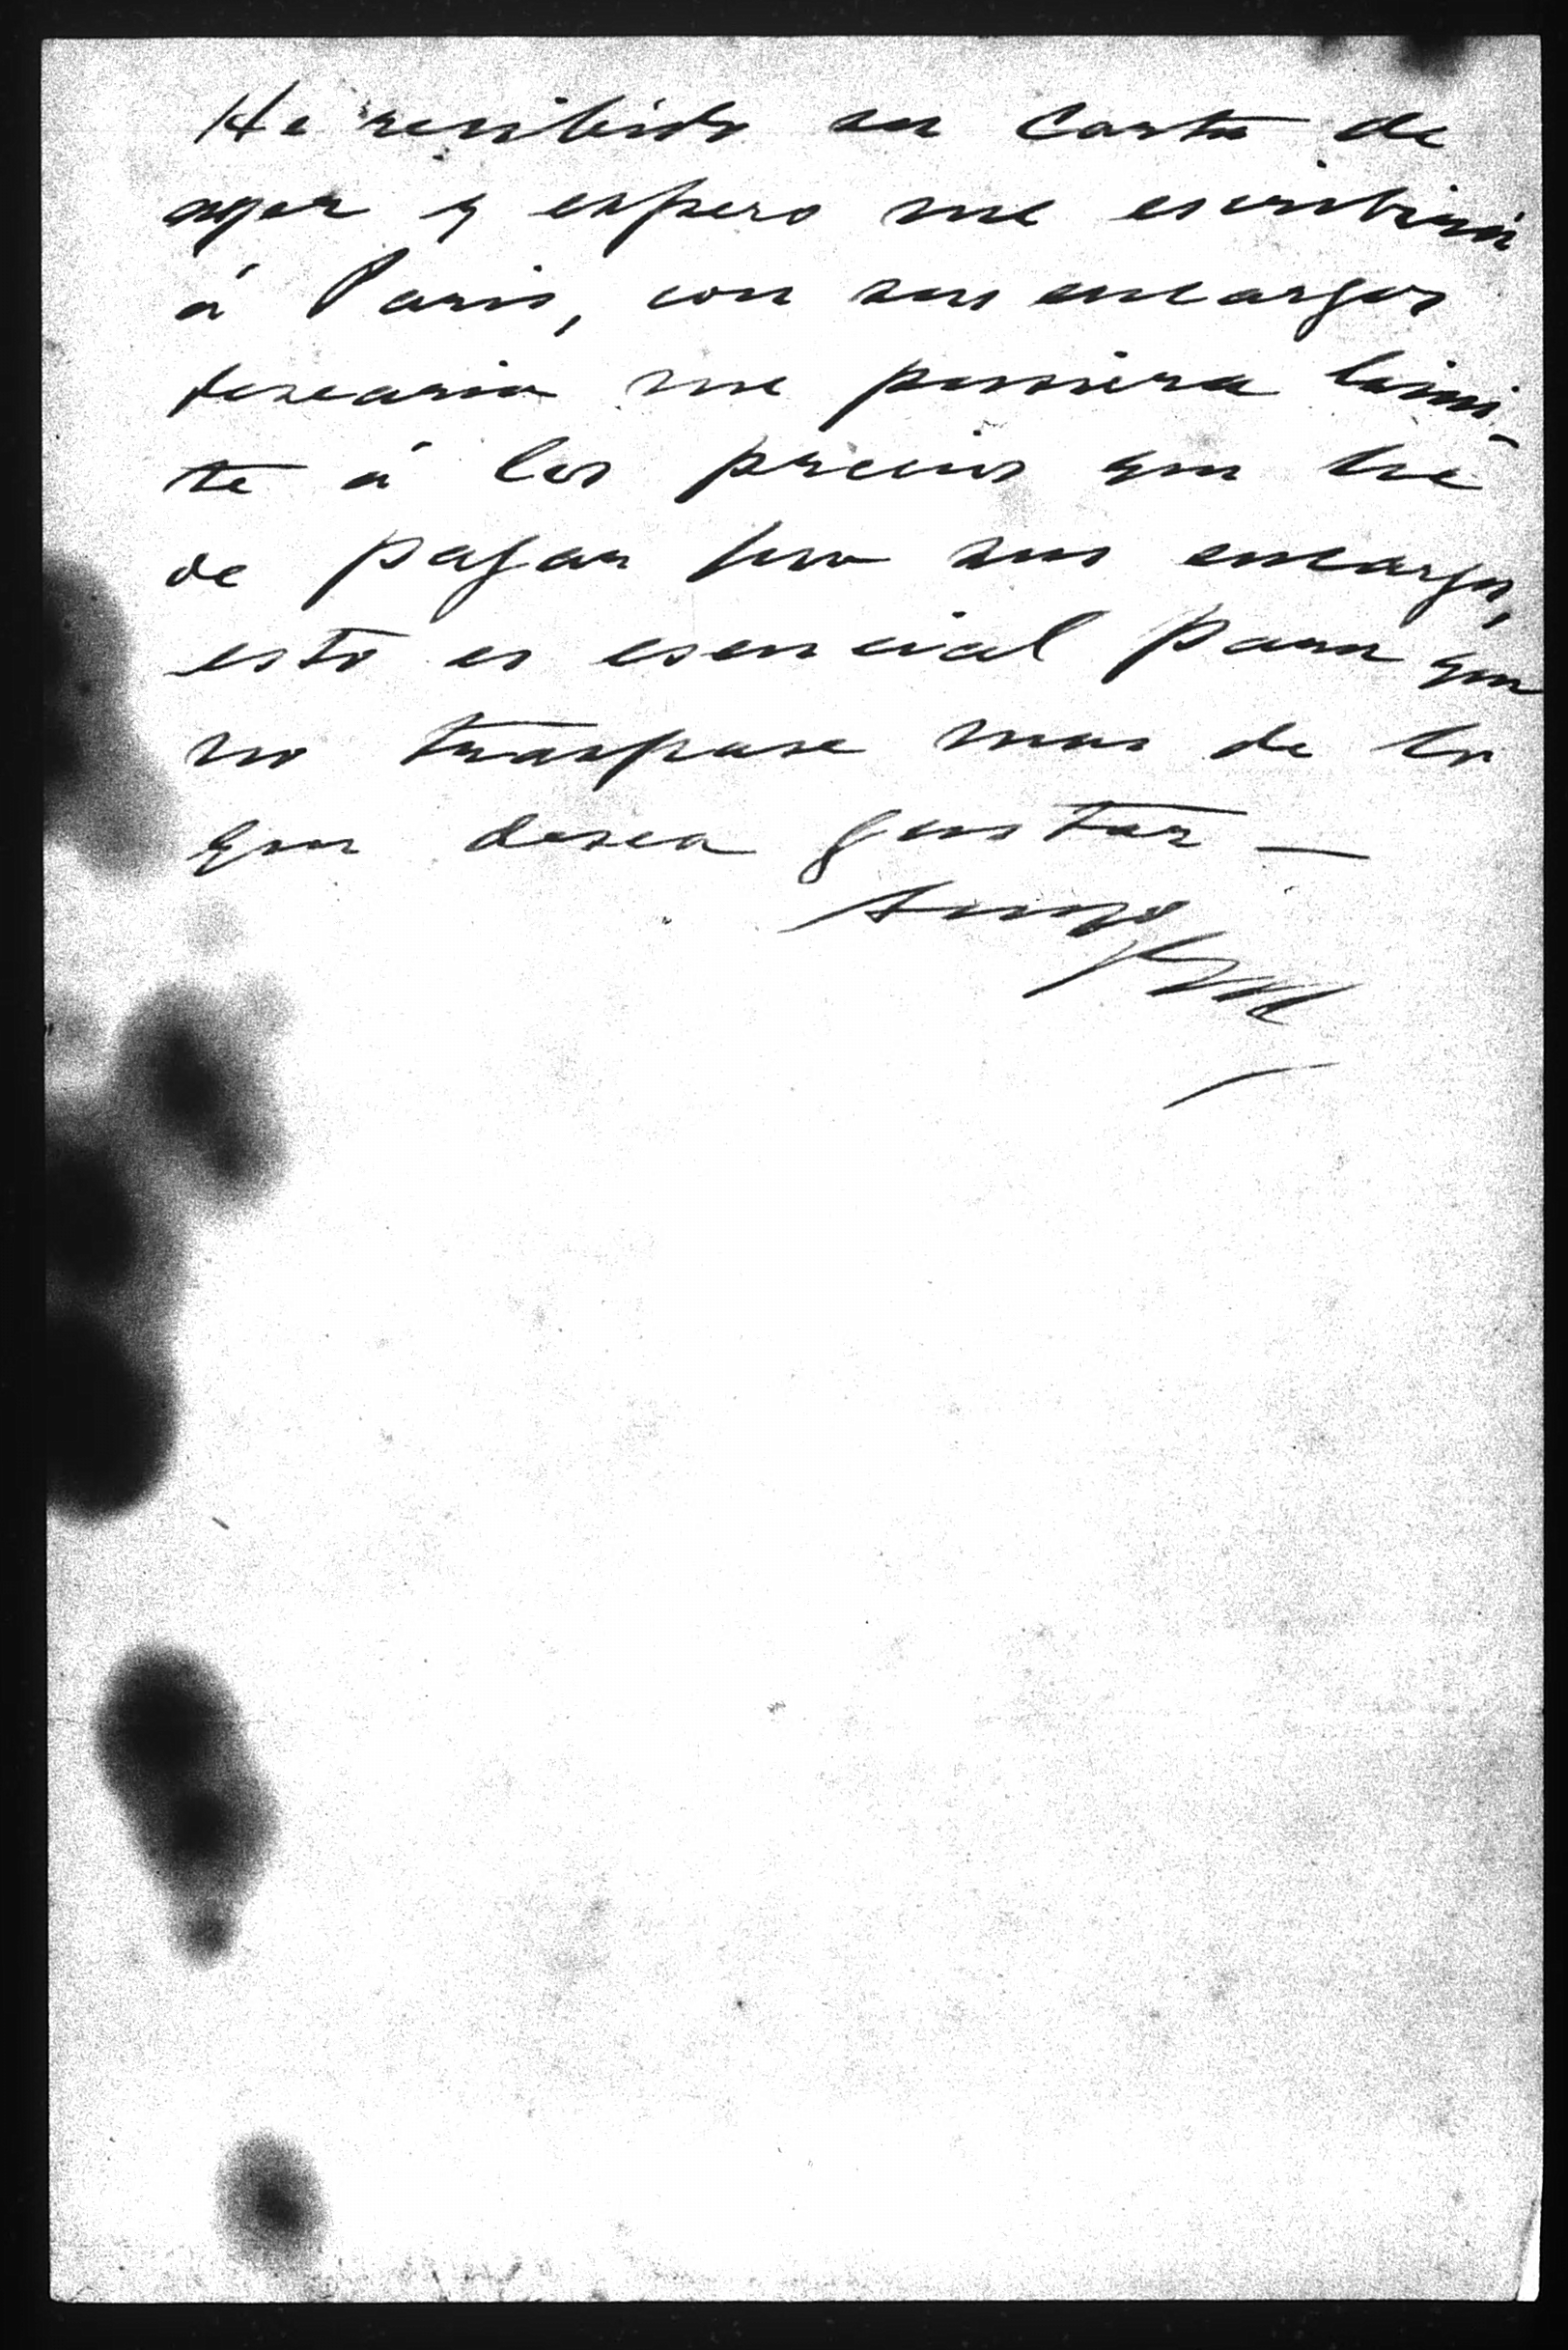 He recibido su carta de
ayer y espero me escribirá
á Paris, con sus encargos
desearia me pusiera limi-
te á los precios que hé
de pagar por sus encargos,
esto es esencial para que
no traspase mas de lo
que desea gastar —